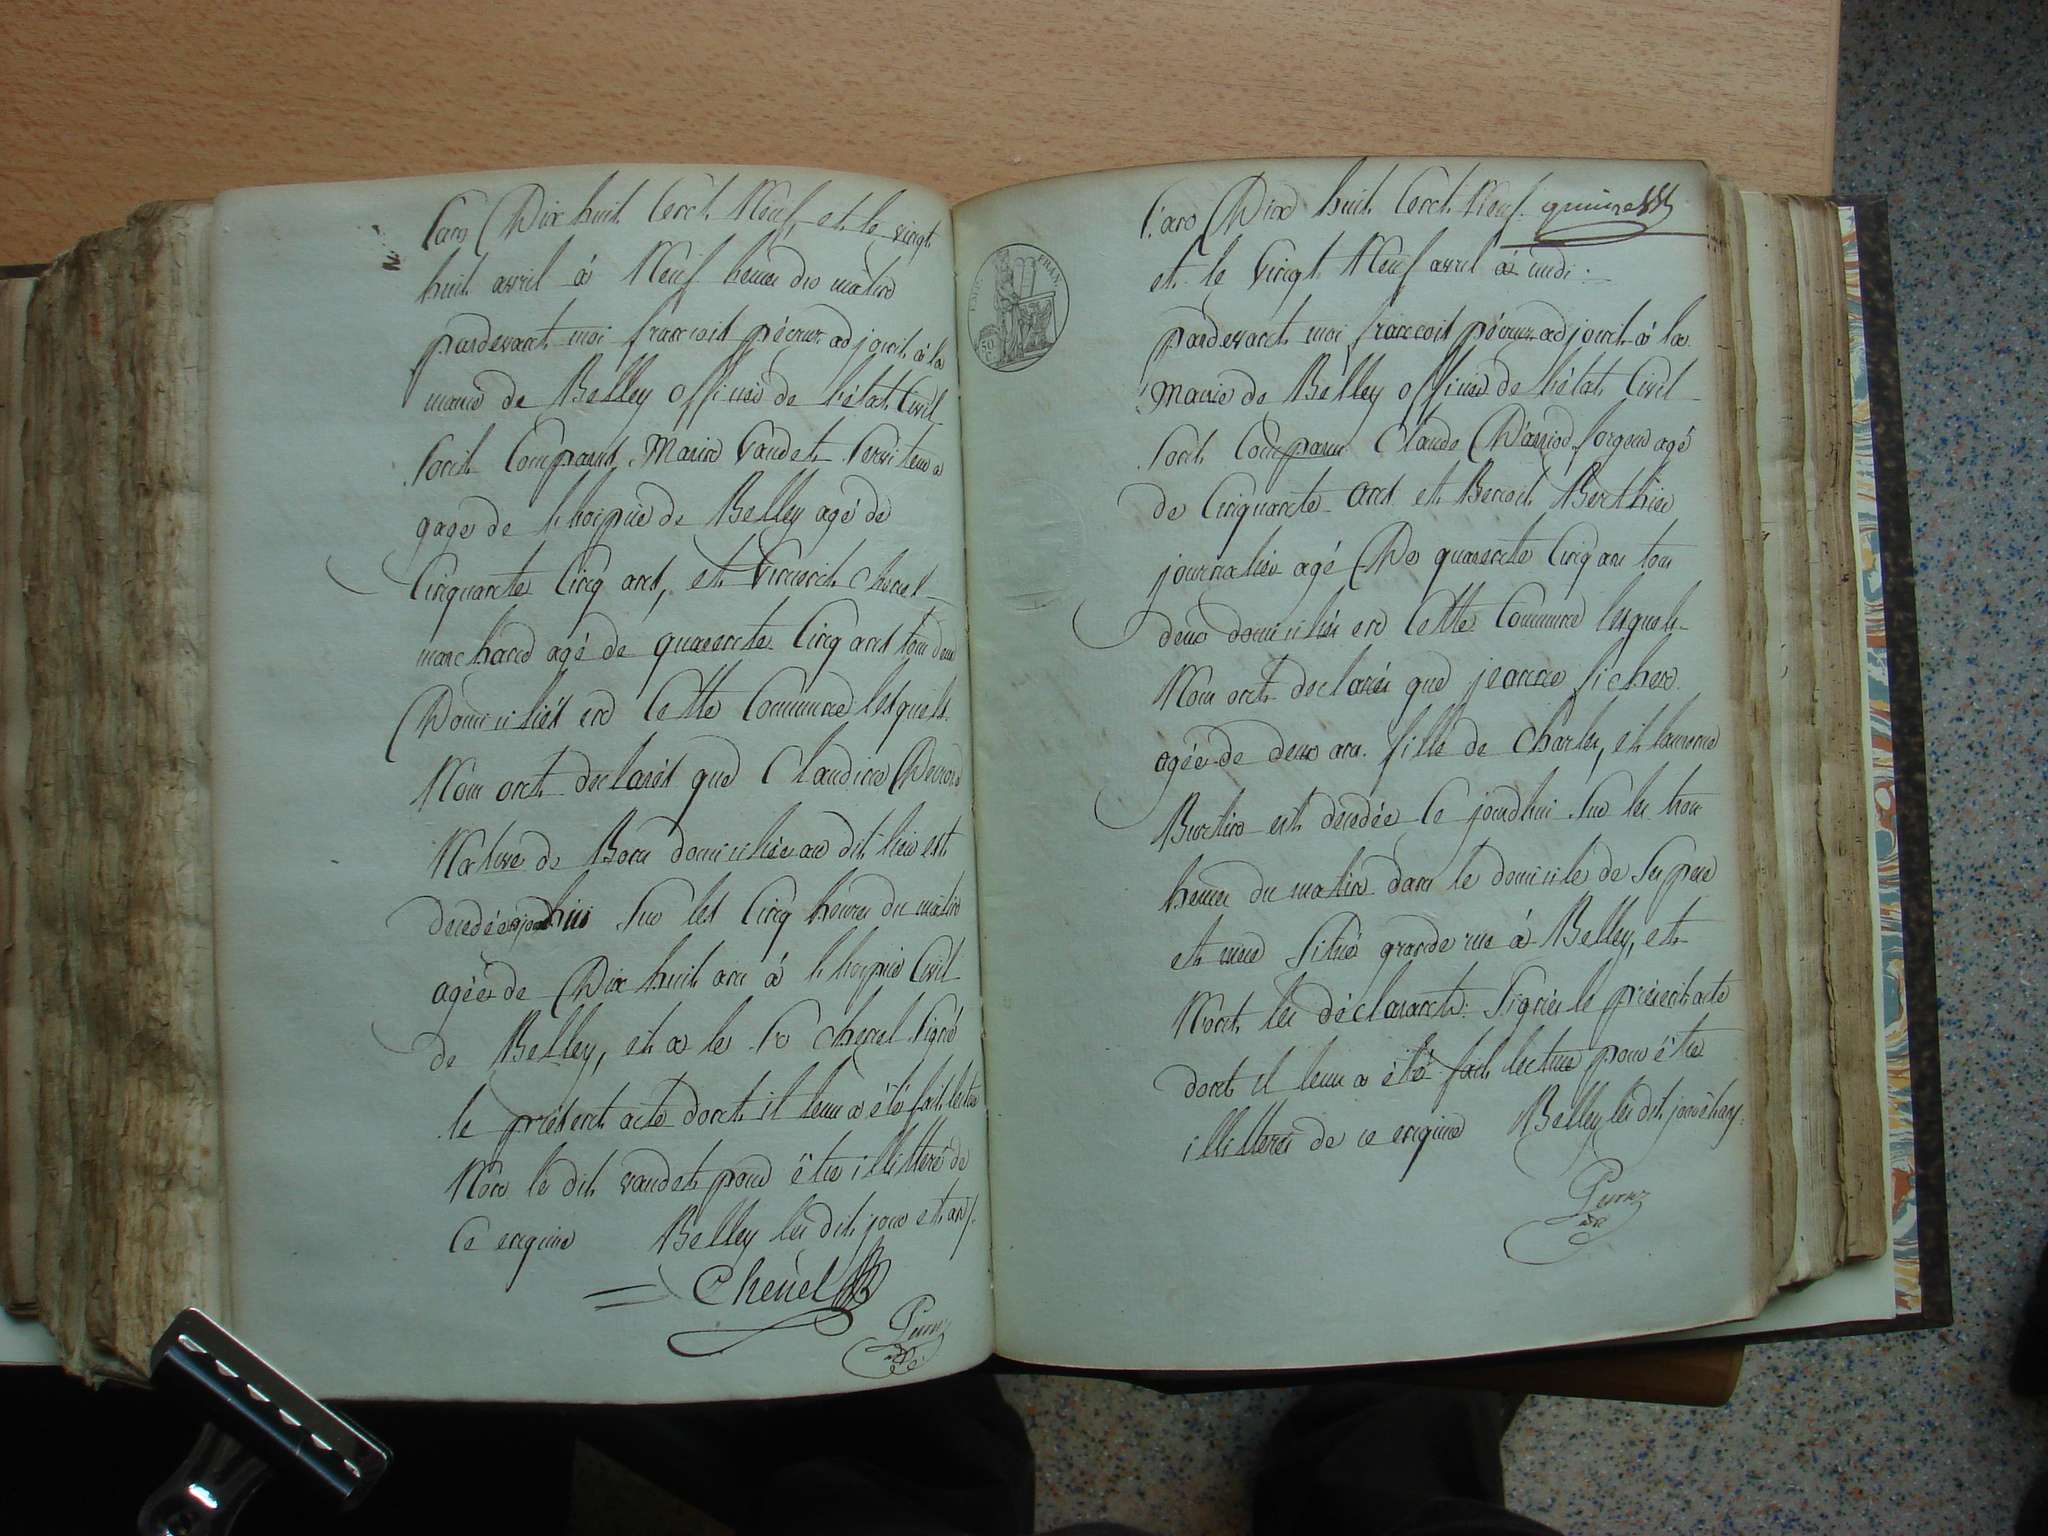 L'an Dix huit Cent Neuf, et le vingt
huit avril à Neuf heures du matin
pardevant moi francois pécour adjoint à la
mairie de Belley officier de l'état Civil
sont Comparus Marin Vaudet Serviteur a
gage de l'hospice de Belley agé de
Cinquante Cinq ans, et Vincent Chenel
marchand agé de quarente Cinq ans tous deux
Domiciliés en Cette Commune lesquels
Nous ont declarés que Claudine
Native de Bons domiciliée au dit lieu est
decedée aujourdhui sur les Cinq heures du matin
agée de Dix huit ans à l'hospice Civil
de Belley, et a le Sr Chenel Signé
le présent acte dont il leur a été fait lecture
Non le dit vaudet pour être illitteré de
Ce enquis Belley les dit jour et an
Chenel
L'an Dix huit Cent Neuf
et le Vingt Neuf avril à midi
pardevant moi francois pécour adjoint à la
Mairie de Belley officier de l'état Civil
sont Comparus Claude forgeur agé
de Cinquante ans et Benoit Berthier
journalier agé De quarente Cinq ans tous
deux domiciliés en Cette Commune lesquels
Nous ont declarés que jeanne
agée de deux ans fille de Charles, et laurence
est decedée Ce jourdhui sur les trois
heures du matin dans le domicile de Ses pere
et mere Situé grande rue à Belley, et
N'ont les déclarants Signés le présent acte
dont il leur a été fait lecture pour être
illitterés de ce enquis Belley les dit jour et an
EMP. FRAN.
50 C.